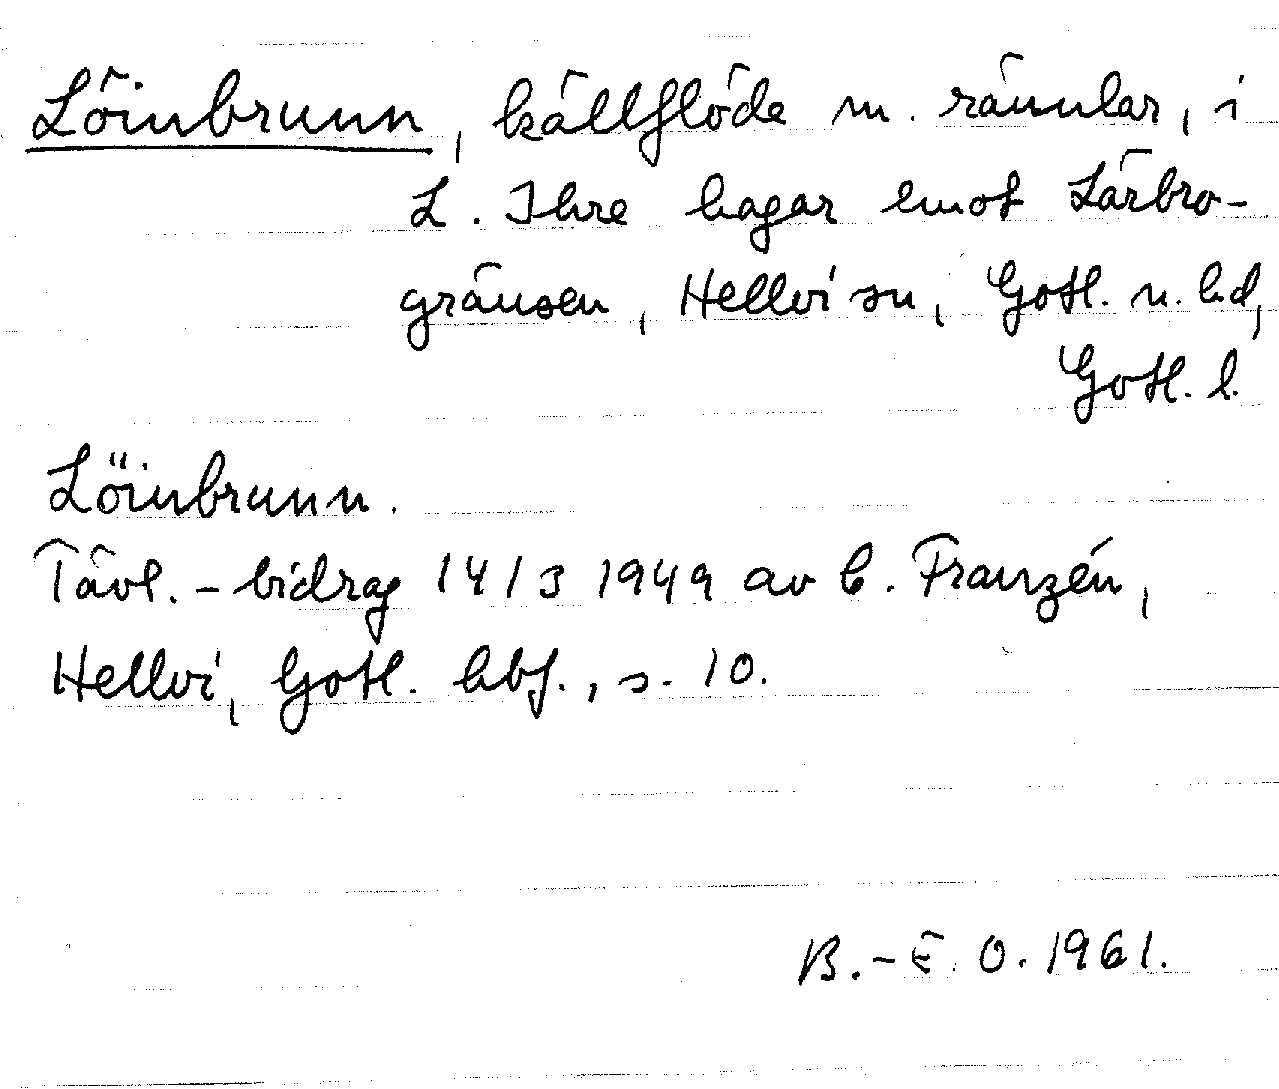 Löinbrunn, källflöde m. rännlar, i
L. Ihre hagar emot Lärbro-
gränsen, Hellvi sn, Gotl. n. hd,
Gotl. l.
Löinbrunn.
Tävl.-bidrag 14/3 1949 av C. Franzén,
Hellvi, Gotl. hbf., s. 10.
B.-E. O. 1961.